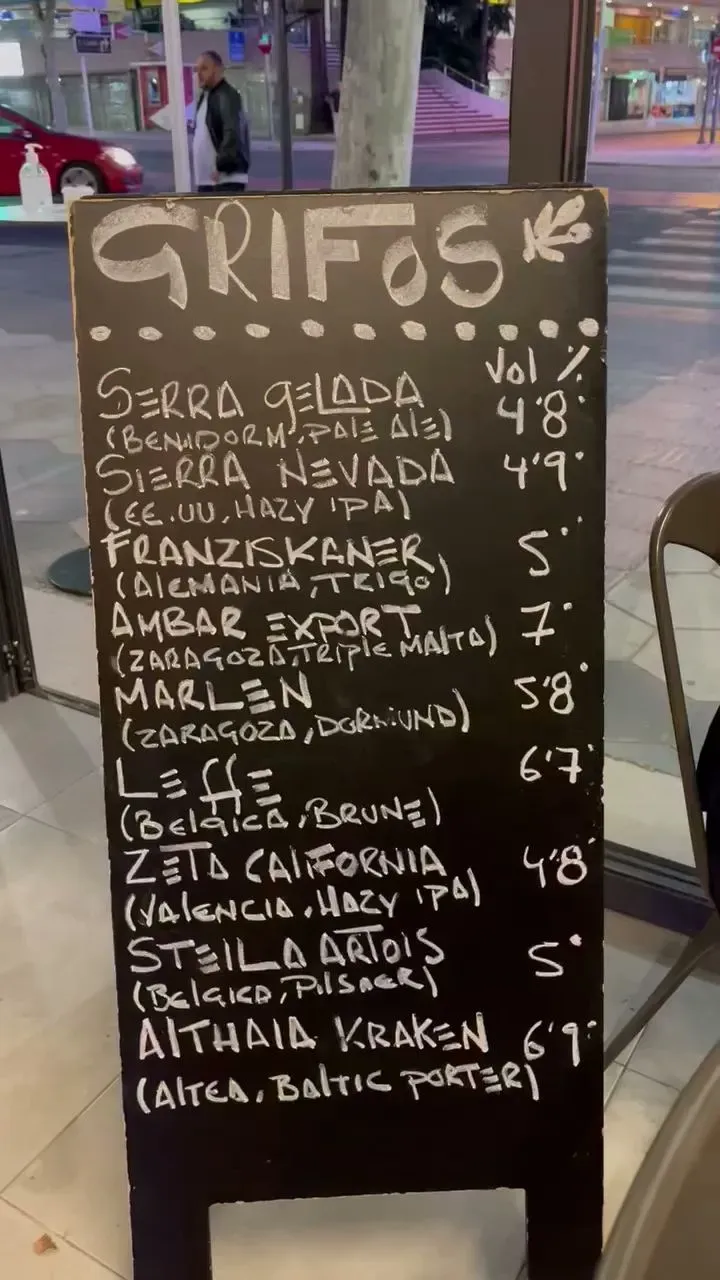 GRIFOS
Vol %
SERRA GELADA 4'8°
(BENIDORM, PALE ALE)
SIERRA NEVADA 4'9°
(EE.UU, HAZY IPA)
FRANZISKANER 5°
(ALEMANIA, TRIGO)
AMBAR EXPORT 7°
(ZARAGOZA, TRIPLE MALTA)
MARLEN 5'8°
(ZARAGOZA, DORMUND)
LEFFE 6'7°
(BELGICA, BRUNE)
ZETA CALIFORNIA 4'8°
(VALENCIA, HAZY IPA)
STELLA ARTOIS 5°
(BELGICA, PILSNER)
ALTHAIA KRAKEN 6'9°
(ALTEA, BALTIC PORTER)